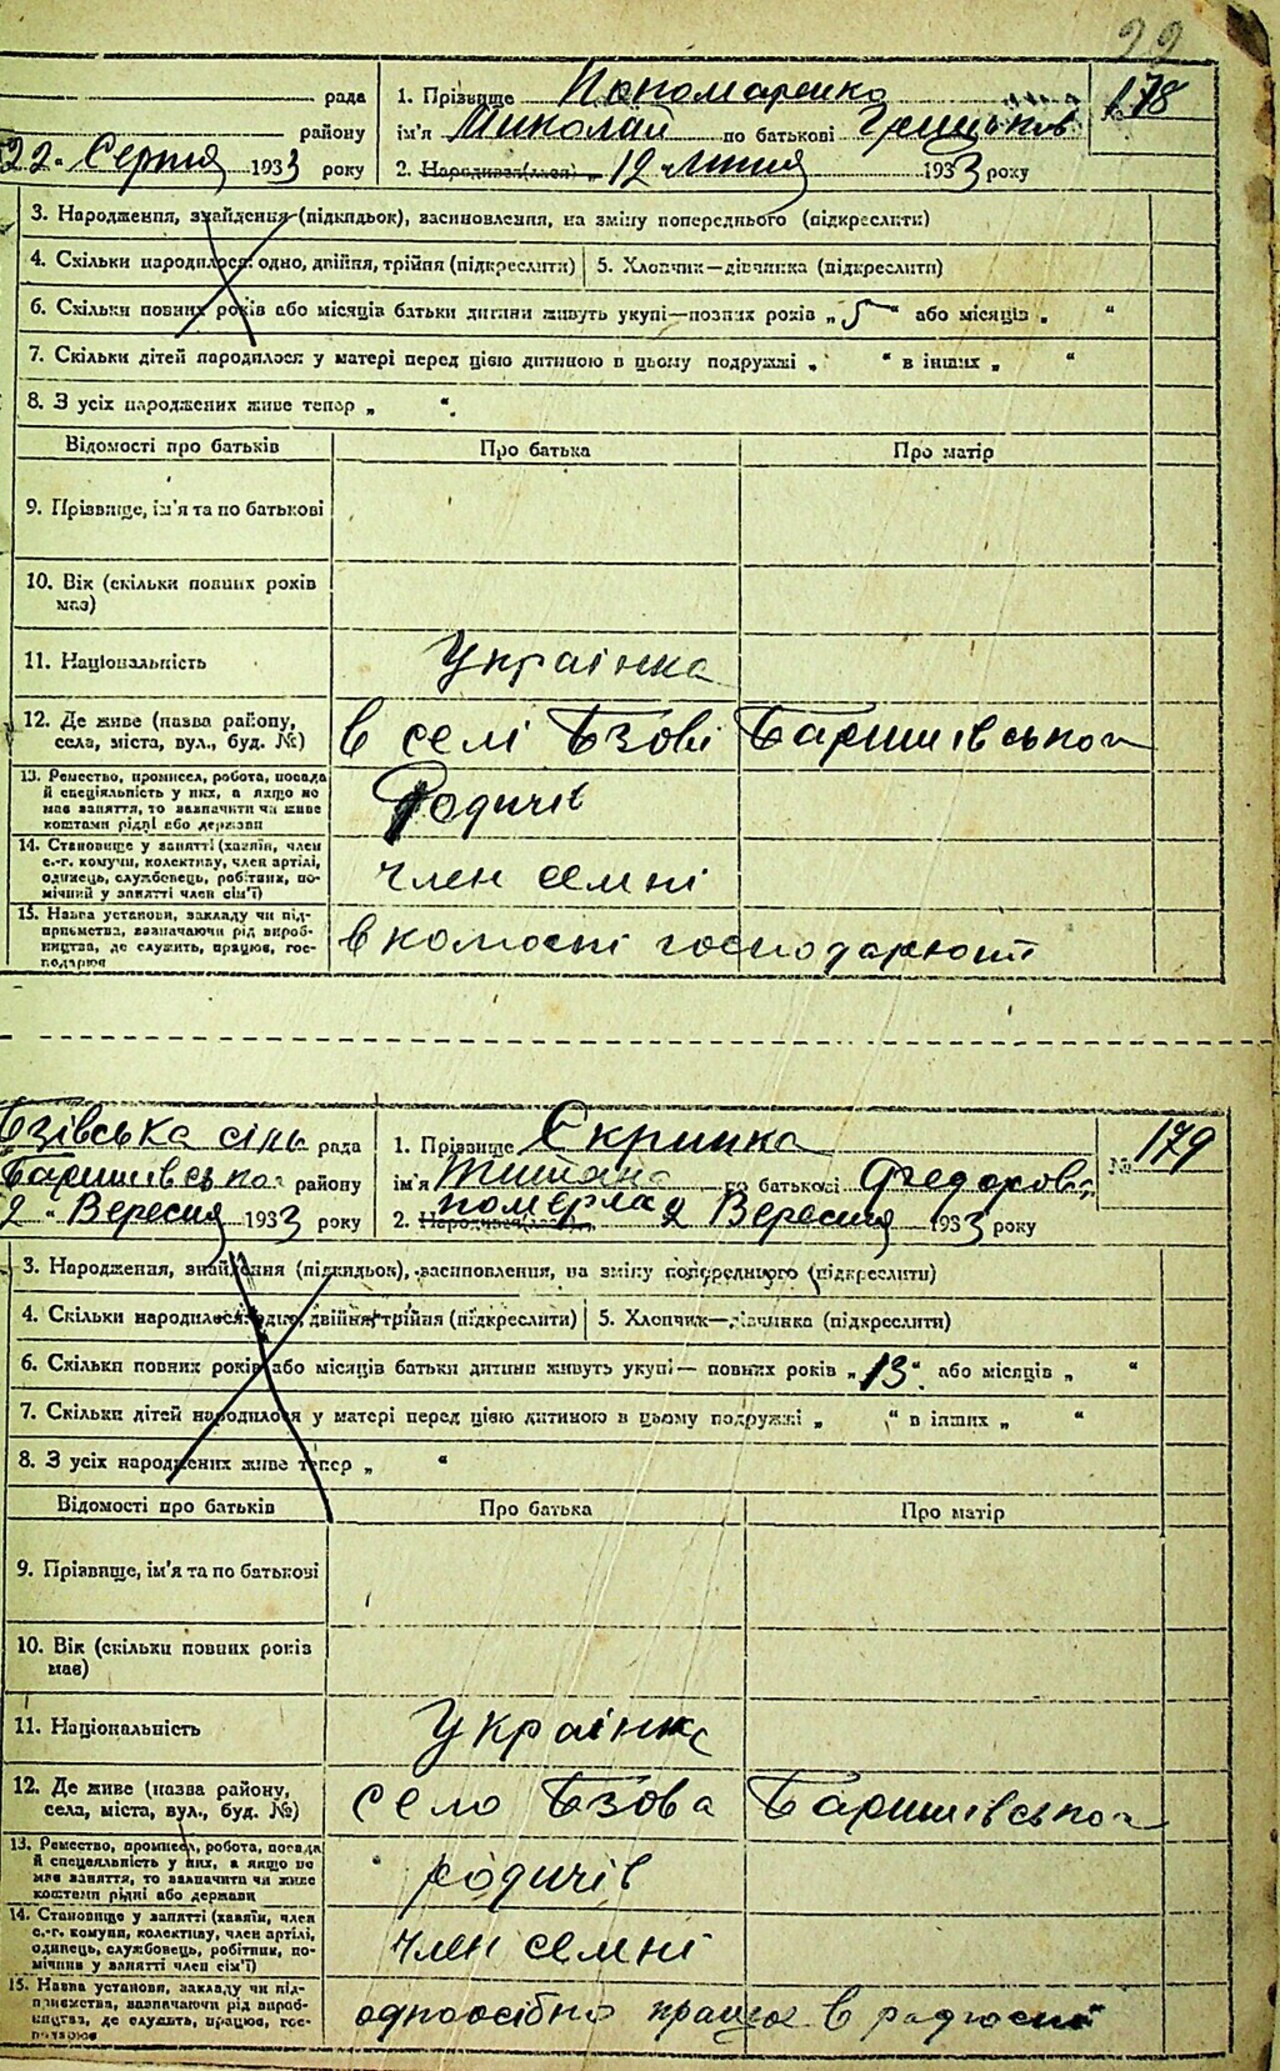 22
рада
1. Прізвище Пономаренко
178
району
ім'я Миколай по батькові Грицьков
22 " Серпня 1933 року
2. Народився(лася) " 12 " липня 1933 року
3. Народження, знайдення (підкидьок), засиновлення, на зміну попереднього (підкреслити)
4. Скільки народилося: одно, двійня, трійня (підкреслити)
5. Хлопчик—дівчинка (підкреслити)
6. Скільки повних років або місяців батьки дитини живуть укупі—повних років „ 5 “ або місяців „ “
7. Скільки дітей народилося у матері перед цією дитиною в цьому подружжі „ “ в інших „ “
8. З усіх народжених живе тепер „ “.
Відомості про батьків
Про батька
Про матір
9. Прізвище, ім'я та по батькові
10. Вік (скільки повних років
має)
11. Національність
Українка
12. Де живе (назва району,
села, міста, вул., буд. №)
в селі Бзові Баришівської
13. Ремество, промисел, робота, посада
й спеціяльність у них, а якщо не
має заняття, то зазначити чи живе
коштами рідні або держави
Родичів
14. Становище у занятті (хазяїн, член
с.-г. комуни, колективу, член артілі,
одинець, службовець, робітник, по-
мічний у занятті член сім'ї)
член семні
15. Назва установи, закладу чи під-
приємства, зазначаючи рід вироб-
ництва, де служить, працює, гос-
подарює
в колоспі господарюють
Бзівська сіль рада
1. Прізвище Скрипка
№ 179
Баришівської району
ім'я Титяна по батькові Федорова
2 " Вересня 1933 року
померла
2. Народився(лася) " 2 Вересня 1933 року
3. Народження, знайдення (підкидьок), засиновлення, на зміну попереднього (підкреслити)
4. Скільки народилося: одно, двійня, трійня (підкреслити)
5. Хлопчик—дівчинка (підкреслити)
6. Скільки повних років або місяців батьки дитини живуть укупі— повних років „ 13 “. або місяців „ “
7. Скільки дітей народилося у матері перед цією дитиною в цьому подружжі „ “ в інших „ “
8. З усіх народжених живе тепер „ “
Відомості про батьків
Про батька
Про матір
9. Прізвище, ім'я та по батькові
10. Вік (скільки повних років
має)
11. Національність
Українка
12. Де живе (назва району,
села, міста, вул., буд. №)
село Бзова Баришівської
13. Ремество, промисел, робота, посада
й спецеяльність у них, а якщо не
має заняття, то зазначити чи живе
коштами рідні або держави
родичів
14. Становище у занятті (хазяїн, член
с.-г. комуни, колективу, член артілі,
одинець, службовець, робітник, по-
мічник у занятті член сім'ї)
член семні
15. Назва установи, закладу чи під-
приємства, зазначаючи рід вироб-
ництва, де служить, працює, гос-
подарює
одноосібно працює в